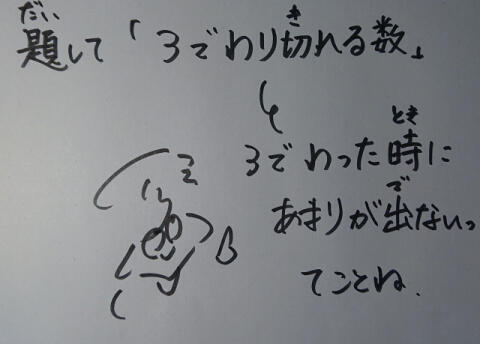 だい　き
題して「3でわり切れる数」
とき
3でわった時に
で
あまりが出ないっ
てことね.